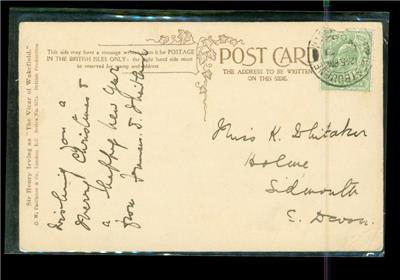 This side may have a message written upon it for postage
IN THE BRITISH ISLES ONLY: the right hand side must
be reserved for stamp and address
POST CARD
THE ADDRESS TO BE WRITTEN
ON THIS SIDE.
Sir Henry Irving as "The Vicar of Wakefield."
C. W. Faulkner & Co., London, E.C. British Production
Wishing you a
Merry Christmas &
a Happy New Year
from
Miss K. Whitaker
Holme
Sidmouth
S. Devon.